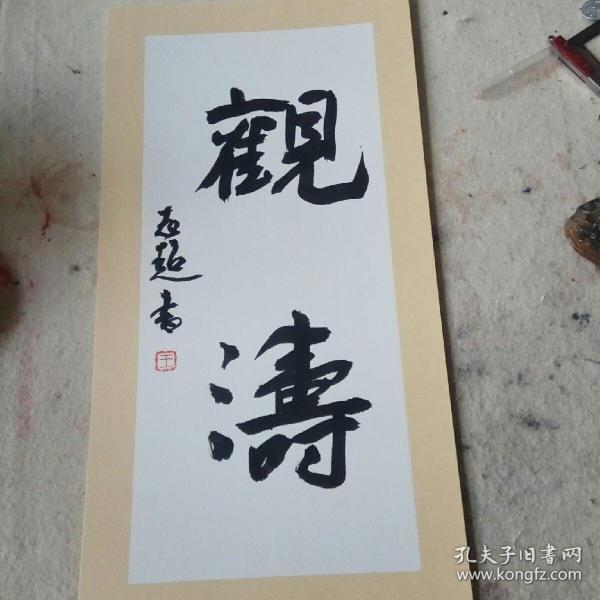 觀
濤
超書
王
孔夫子旧书网
www.kongfz.com